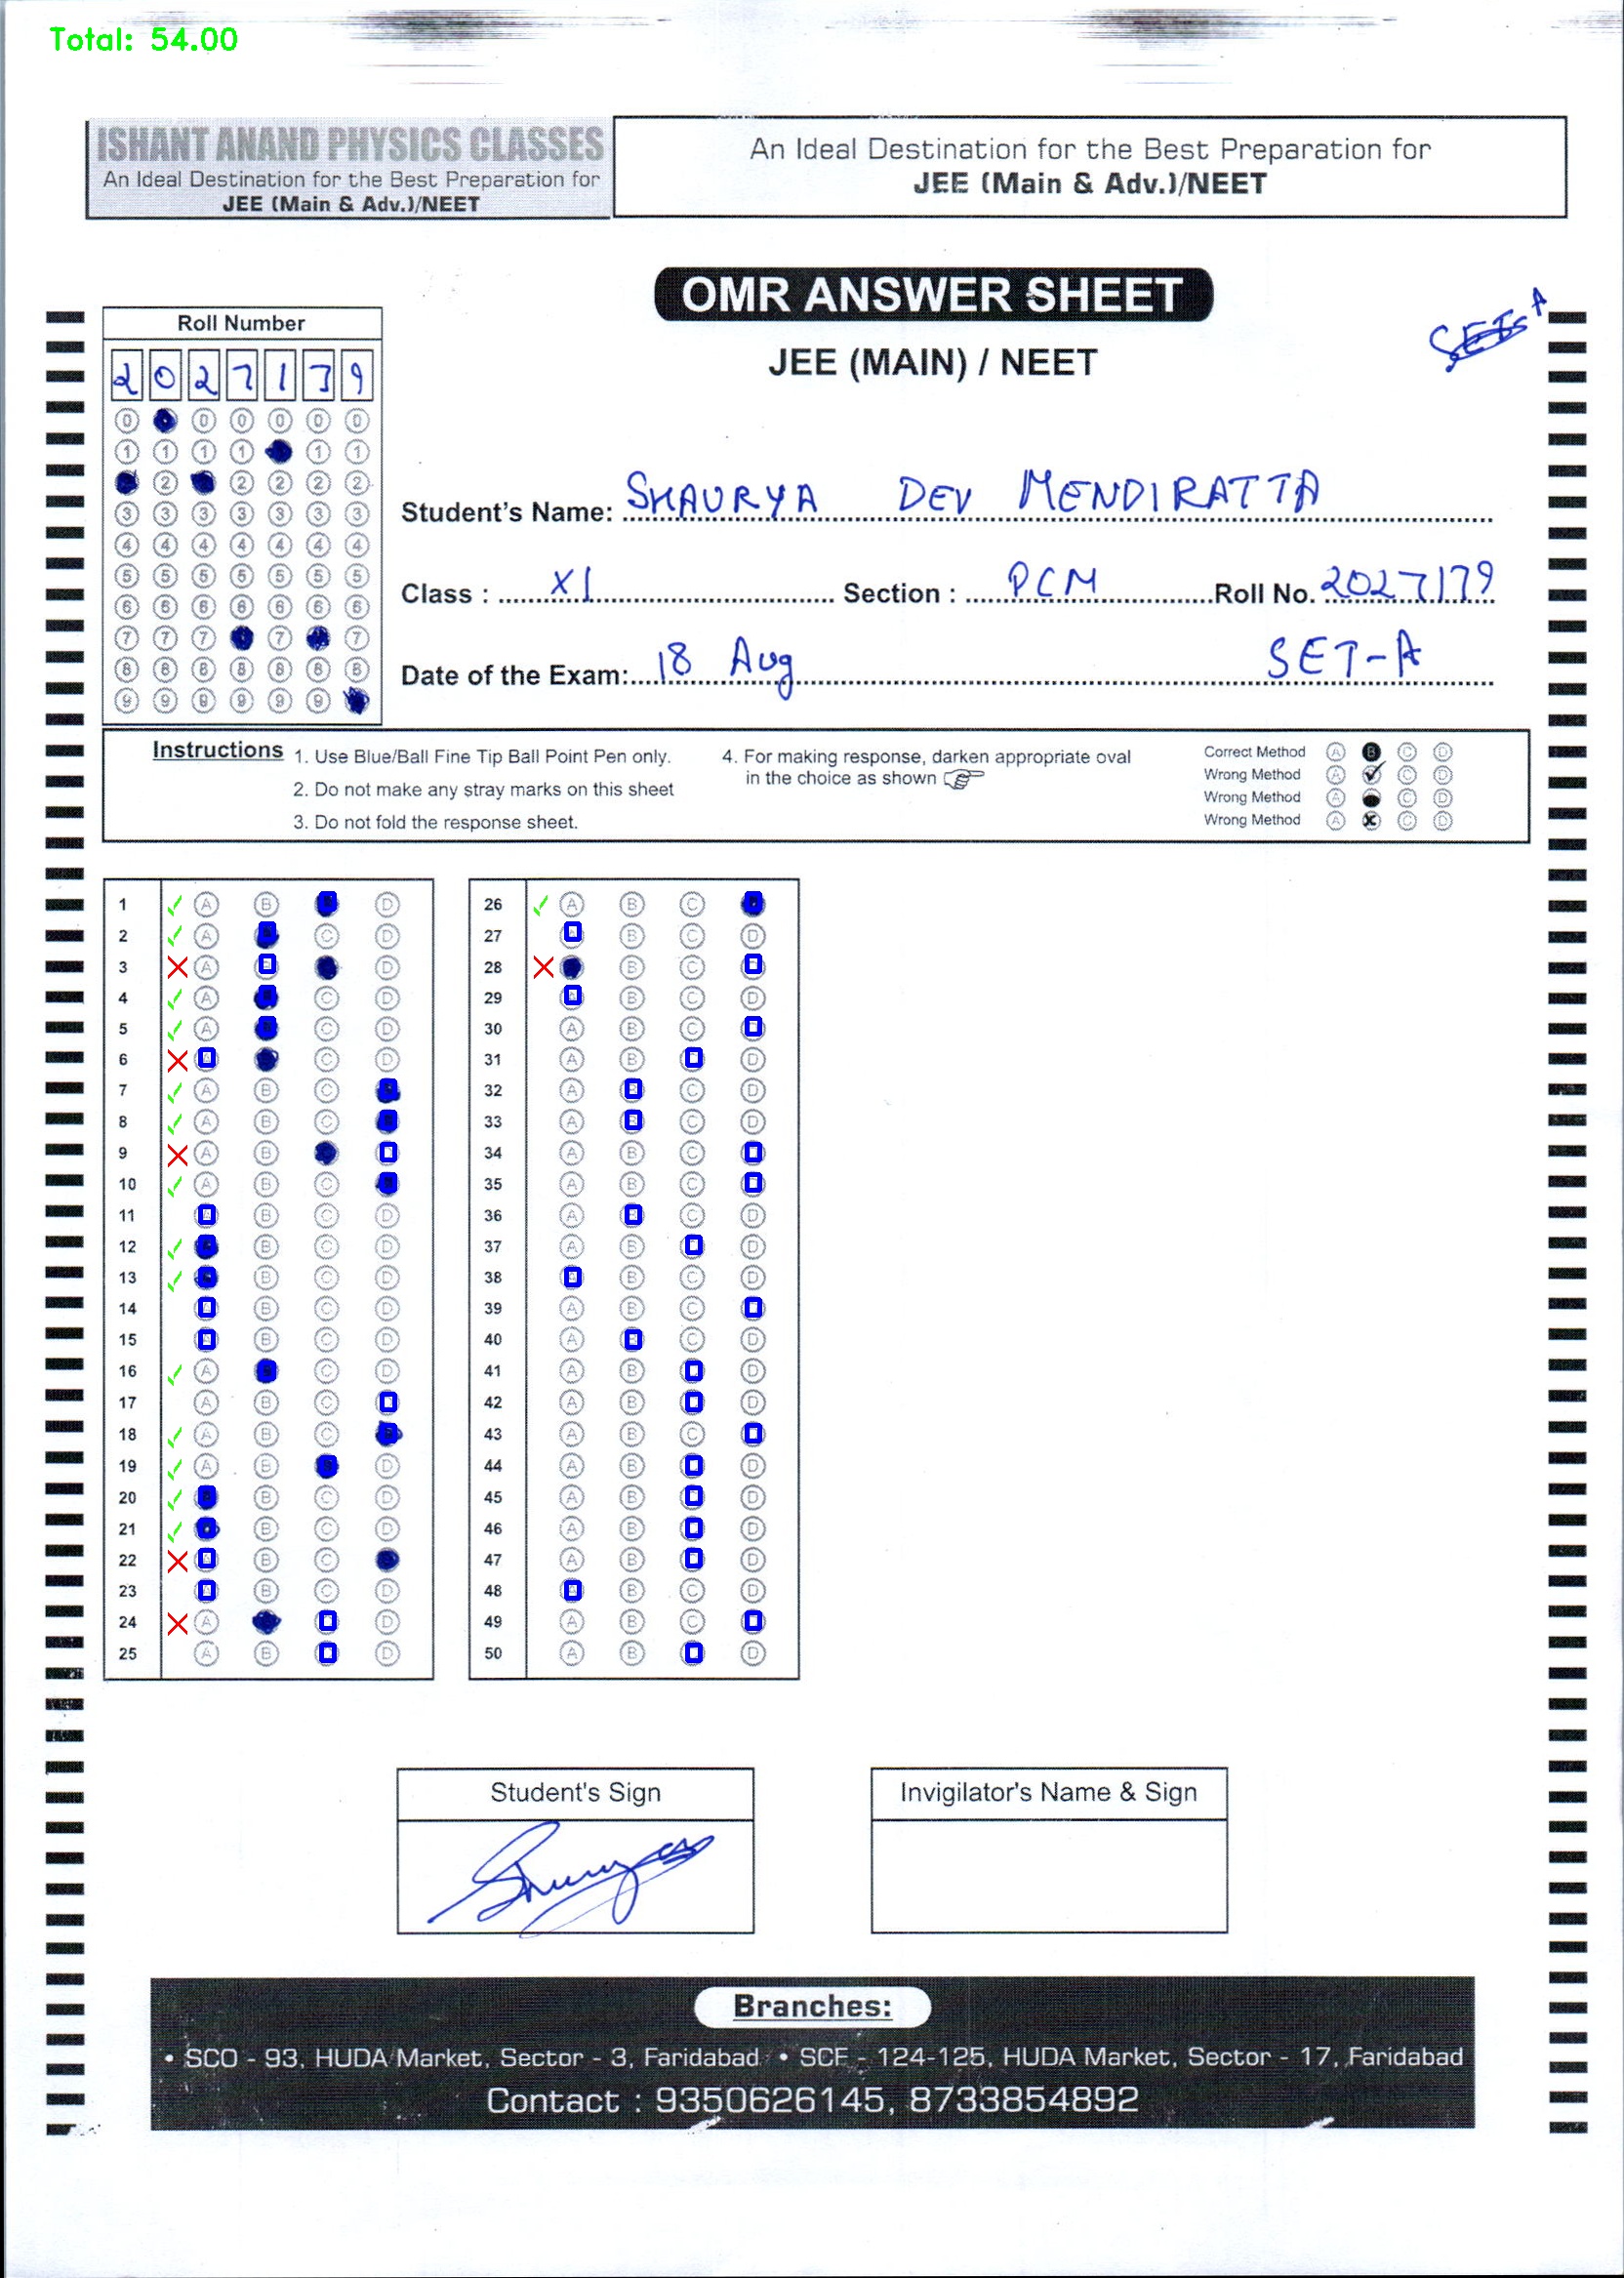 Total: 54.00
ISHANT ANAND PHYSICS CLASSES
An Ideal Destination for the Best Preparation for
JEE (Main & Adv.)/NEET
An Ideal Destination for the Best Preparation for
JEE (Main & Adv.)/NEET
OMR ANSWER SHEET
JEE (MAIN) / NEET
A
Roll Number
2 0 2 7 1 7 9
0 0 0 0 0 0
1 1 1 1 1 1
2 2 2 2 2
3 3 3 3 3 3 3
4 4 4 4 4 4 4
5 5 5 5 5 5 5
6 6 6 6 6 6 6
7 7 7 7 7
8 8 8 8 8 8 8
9 9 9 9 9 9
Student's Name: SHAURYA DEV MENDIRATTA
Class : XI Section : PCM Roll No. 2027179
Date of the Exam: 18 Aug SET-A
Instructions 1. Use Blue/Ball Fine Tip Ball Point Pen only.
2. Do not make any stray marks on this sheet
3. Do not fold the response sheet.
4. For making response, darken appropriate oval
in the choice as shown
Correct Method A B C D
Wrong Method A C D
Wrong Method A C D
Wrong Method A C D
1 A B D
2 A C D
3 A D
4 A C D
5 A C D
6 C D
7 A B C
8 A B C
9 A B
10 A B C
11 B C D
12 B C D
13 B C D
14 B C D
15 B C D
16 A C D
17 A B C
18 A B C
19 A B D
20 B C D
21 B C D
22 B C
23 B C D
24 A D
25 A B D
26 A B C
27 B C D
28 B C
29 B C D
30 A B C
31 A B D
32 A C D
33 A C D
34 A B C
35 A B C
36 A C D
37 A B D
38 B C D
39 A B C
40 A C D
41 A B D
42 A B D
43 A B C
44 A B D
45 A B D
46 A B D
47 A B D
48 B C D
49 A B C
50 A B D
Student's Sign
Invigilator's Name & Sign
Branches:
• SCO - 93, HUDA Market, Sector - 3, Faridabad • SCF - 124-125, HUDA Market, Sector - 17, Faridabad
Contact : 9350626145, 8733854892